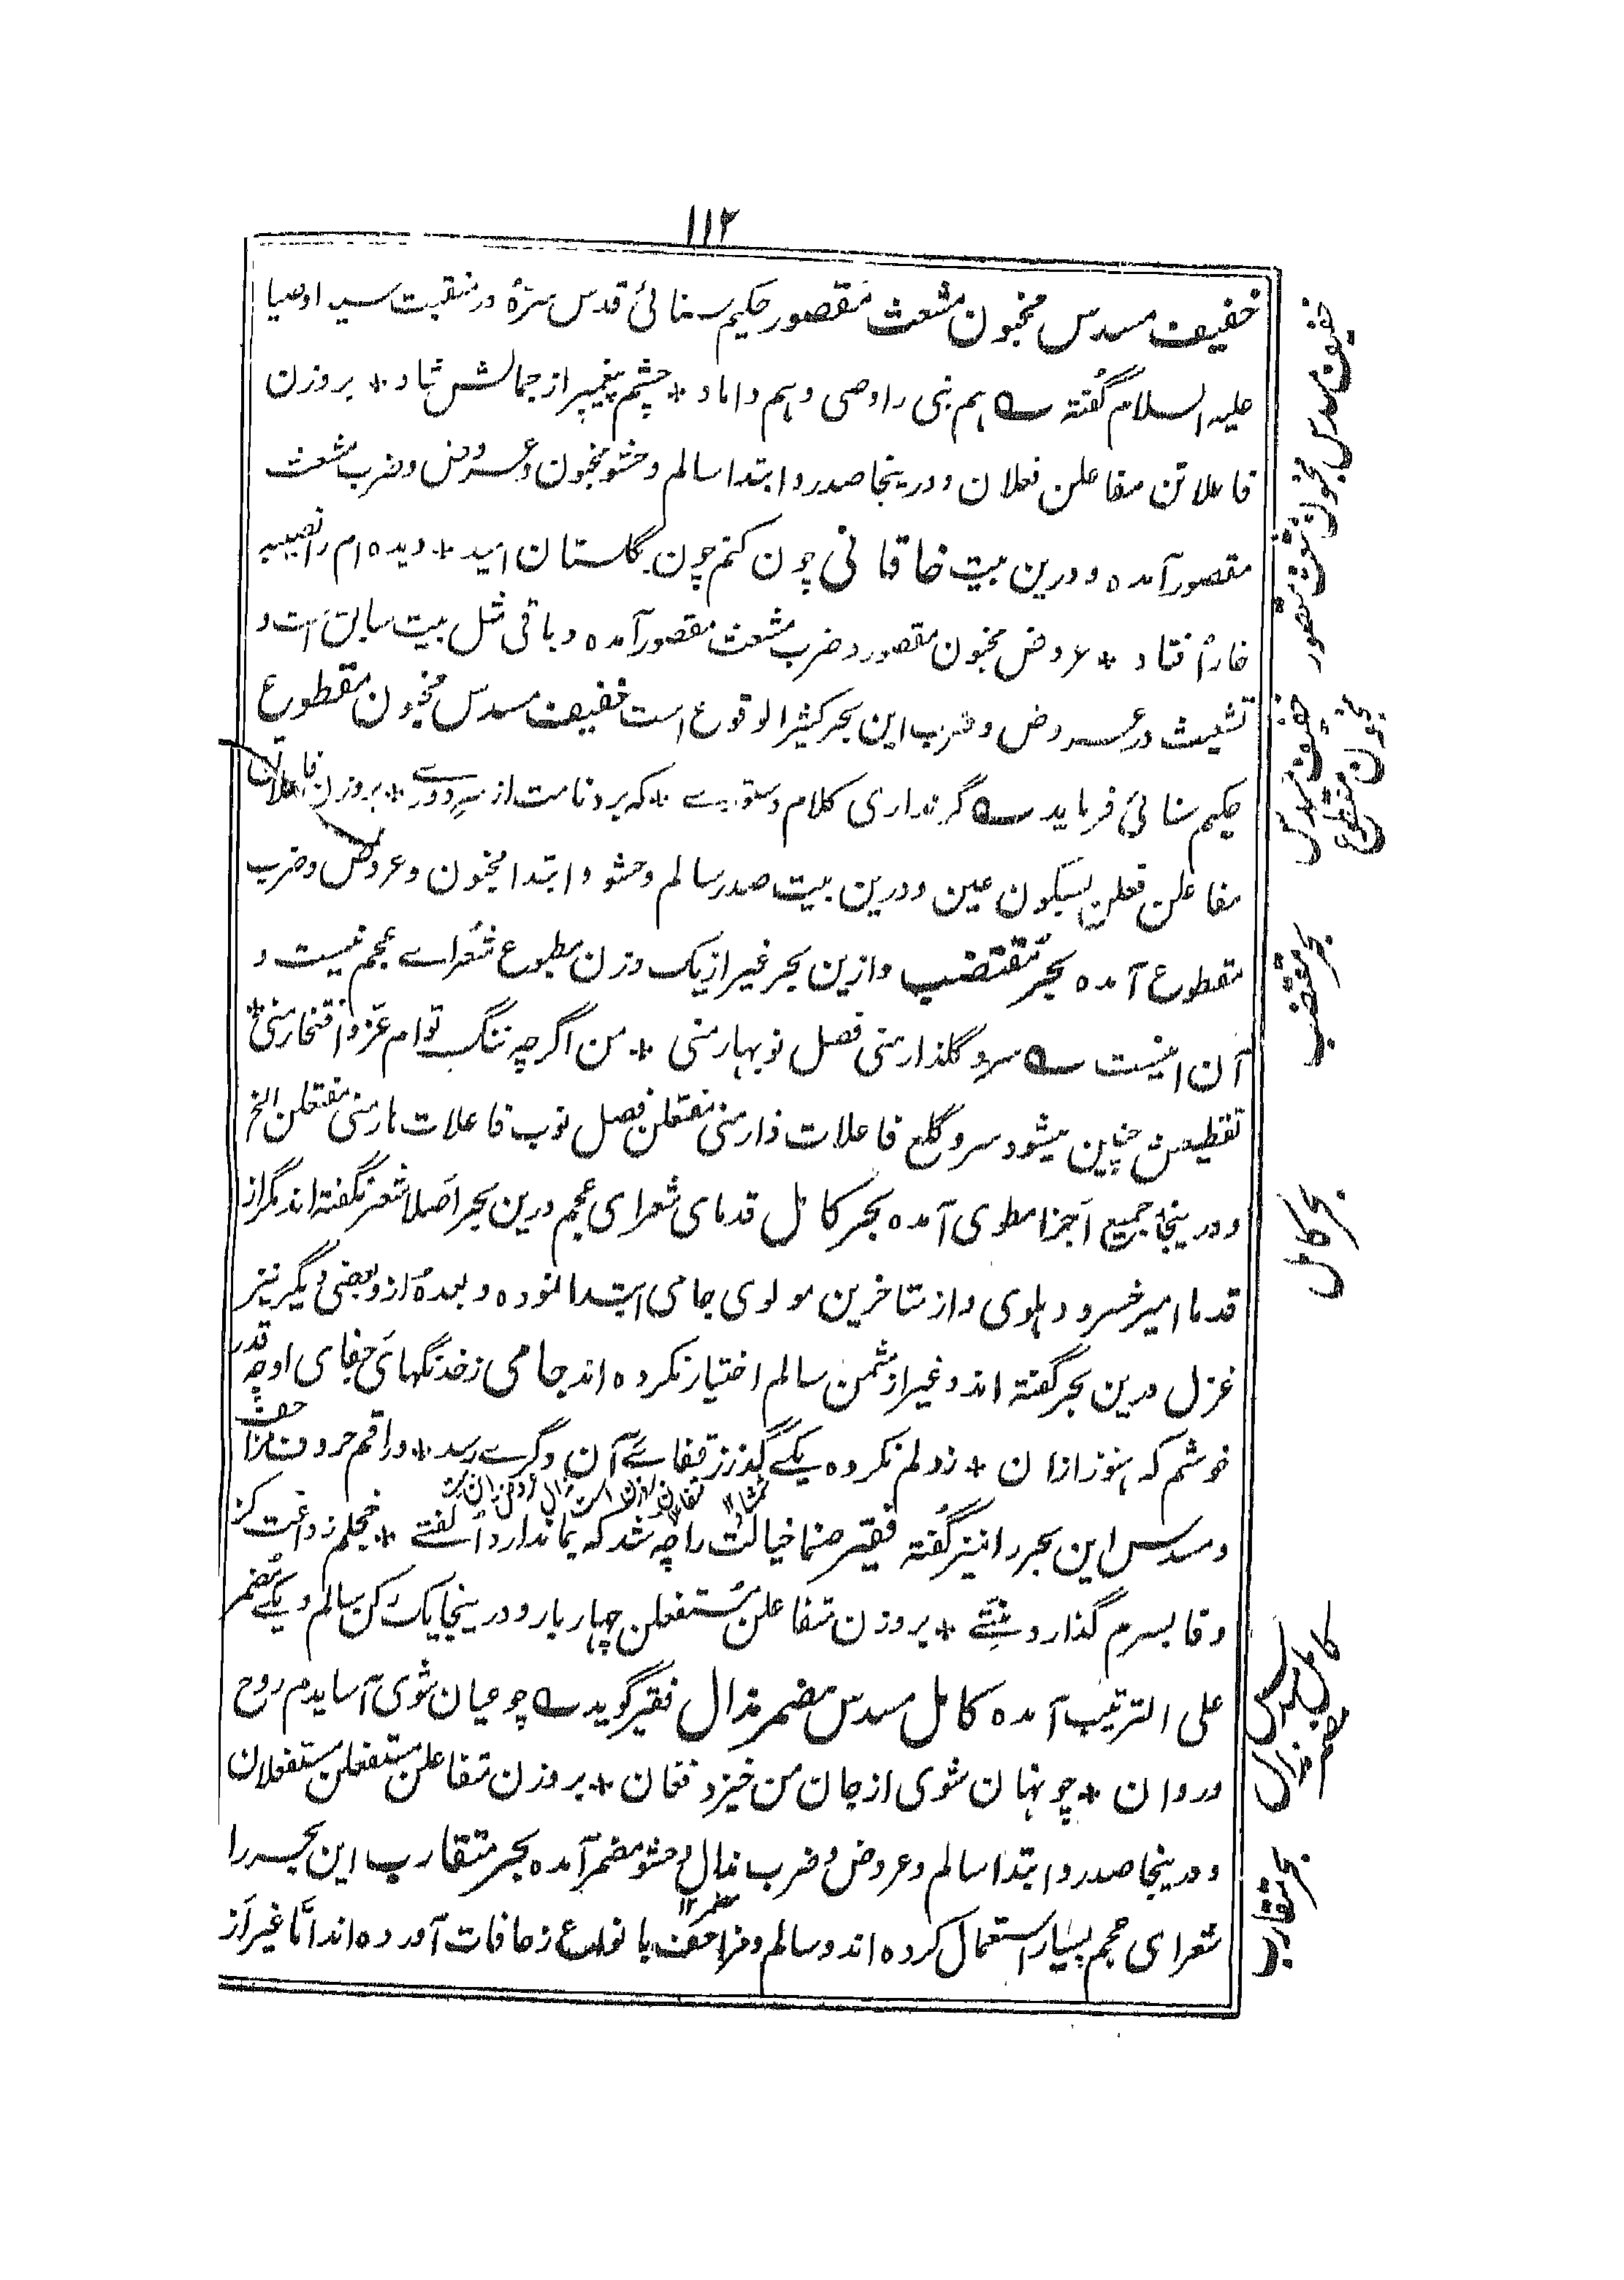 ۱۱۲
خفیف مسدس مخبون مشعث مقصور حکیم سنائی قدس سرہٗ در منقبت سید اوصیا
علیہ السلام گفتہ ے ہم نبی را وصی و ہم داماد * چشم پیغمبر از جمالش شاد * بروزن
فاعلاتن مفاعلن فعلان و درینجا صدر و ابتدا سالم و حشو مخبون و عروض و ضرب مشعث
مقصور آمدہ و درین بیت خاقانی چون کنم چون گلستان امید * دیدہ ام را نصیبہ
خار افتاد * عروض مخبون مقصور و ضرب مشعث مقصور آمدہ و باقی مثل بیت سابق است و
تشعیث در عروض و ضرب این بحر کثیر الوقوع است خفیف مسدس مخبون مقطوع
حکیم سنائی فرماید ے گر نداری کلام دستوری * کہ برد نامت از سر دوری * بروزن فاعلاتن
مفاعلن فعلن بسکون عین و درین بیت صدر سالم و حشو و ابتدا مخبون و عروض و ضرب
مقطوع آمدہ بحر مقتضب و ازین بحر غیر از یک وزن مطبوع شعراے عجم نیست و
آن اینست ے سرو گلذار منی فصل نوبہار منی * من اگرچہ ننگ توام عز و افتخار منی *
تقطیعش چنین میشود سرو گلع فاعلات ذار منی مفتعلن فصل نوب فاعلات ہار منی مفتعلن الخ
و درینجا جمیع اجزا مطوی آمدہ بحر کامل قدمای شعرای عجم درین بحر اصلا شعر نگفتہ اند مگر از
قدما امیر خسرو دہلوی و از متاخرین مولوی جامی ابتدا نمودہ و بعدہٗ ازو بعضی دیگر نیز
غزل درین بحر گفتہ اند و غیر از مثمن سالم اختیار نکردہ اند جامی ز خدنگہای جفای او چہ قدر
خوشم کہ ہنوز ازان * ز دلم نکردہ یکے گذر ز قفاے آن دگرے رسد * و راقم حروف
و مسدس این بحر را نیز گفتہ فقیر صنما خیالت را چہ شد کہ بما ندارد الفتے * خجلم ز داغت کز
وفا بسرم گذارد منتے * بروزن متفاعلن مستفعلن چہار بار و درینجا یک رکن سالم و یکے مضمر
علی الترتیب آمدہ کامل مسدس مضمر مذال فقیر گوید ے چو عیان شوی آسایدم روح
و روان * چو نہان شوی از جان من خیزد فغان * بروزن متفاعلن مستفعلن مستفعلان
و درینجا صدر و ابتدا سالم و عروض و ضرب مذال و حشو مضمر آمدہ بحر متقارب این بحر را
شعرای عجم بسیار استعمال کردہ اند و سالم و مزاحف با نواع زحافات آوردہ اند امّا غیر از
خفیف مسدس مخبون مشعث مقصور
خفیف مسدس
مخبون مقطوع
بحر مقتضب
بحر کامل
کامل مسدس
مضمر مذال
بحر متقارب